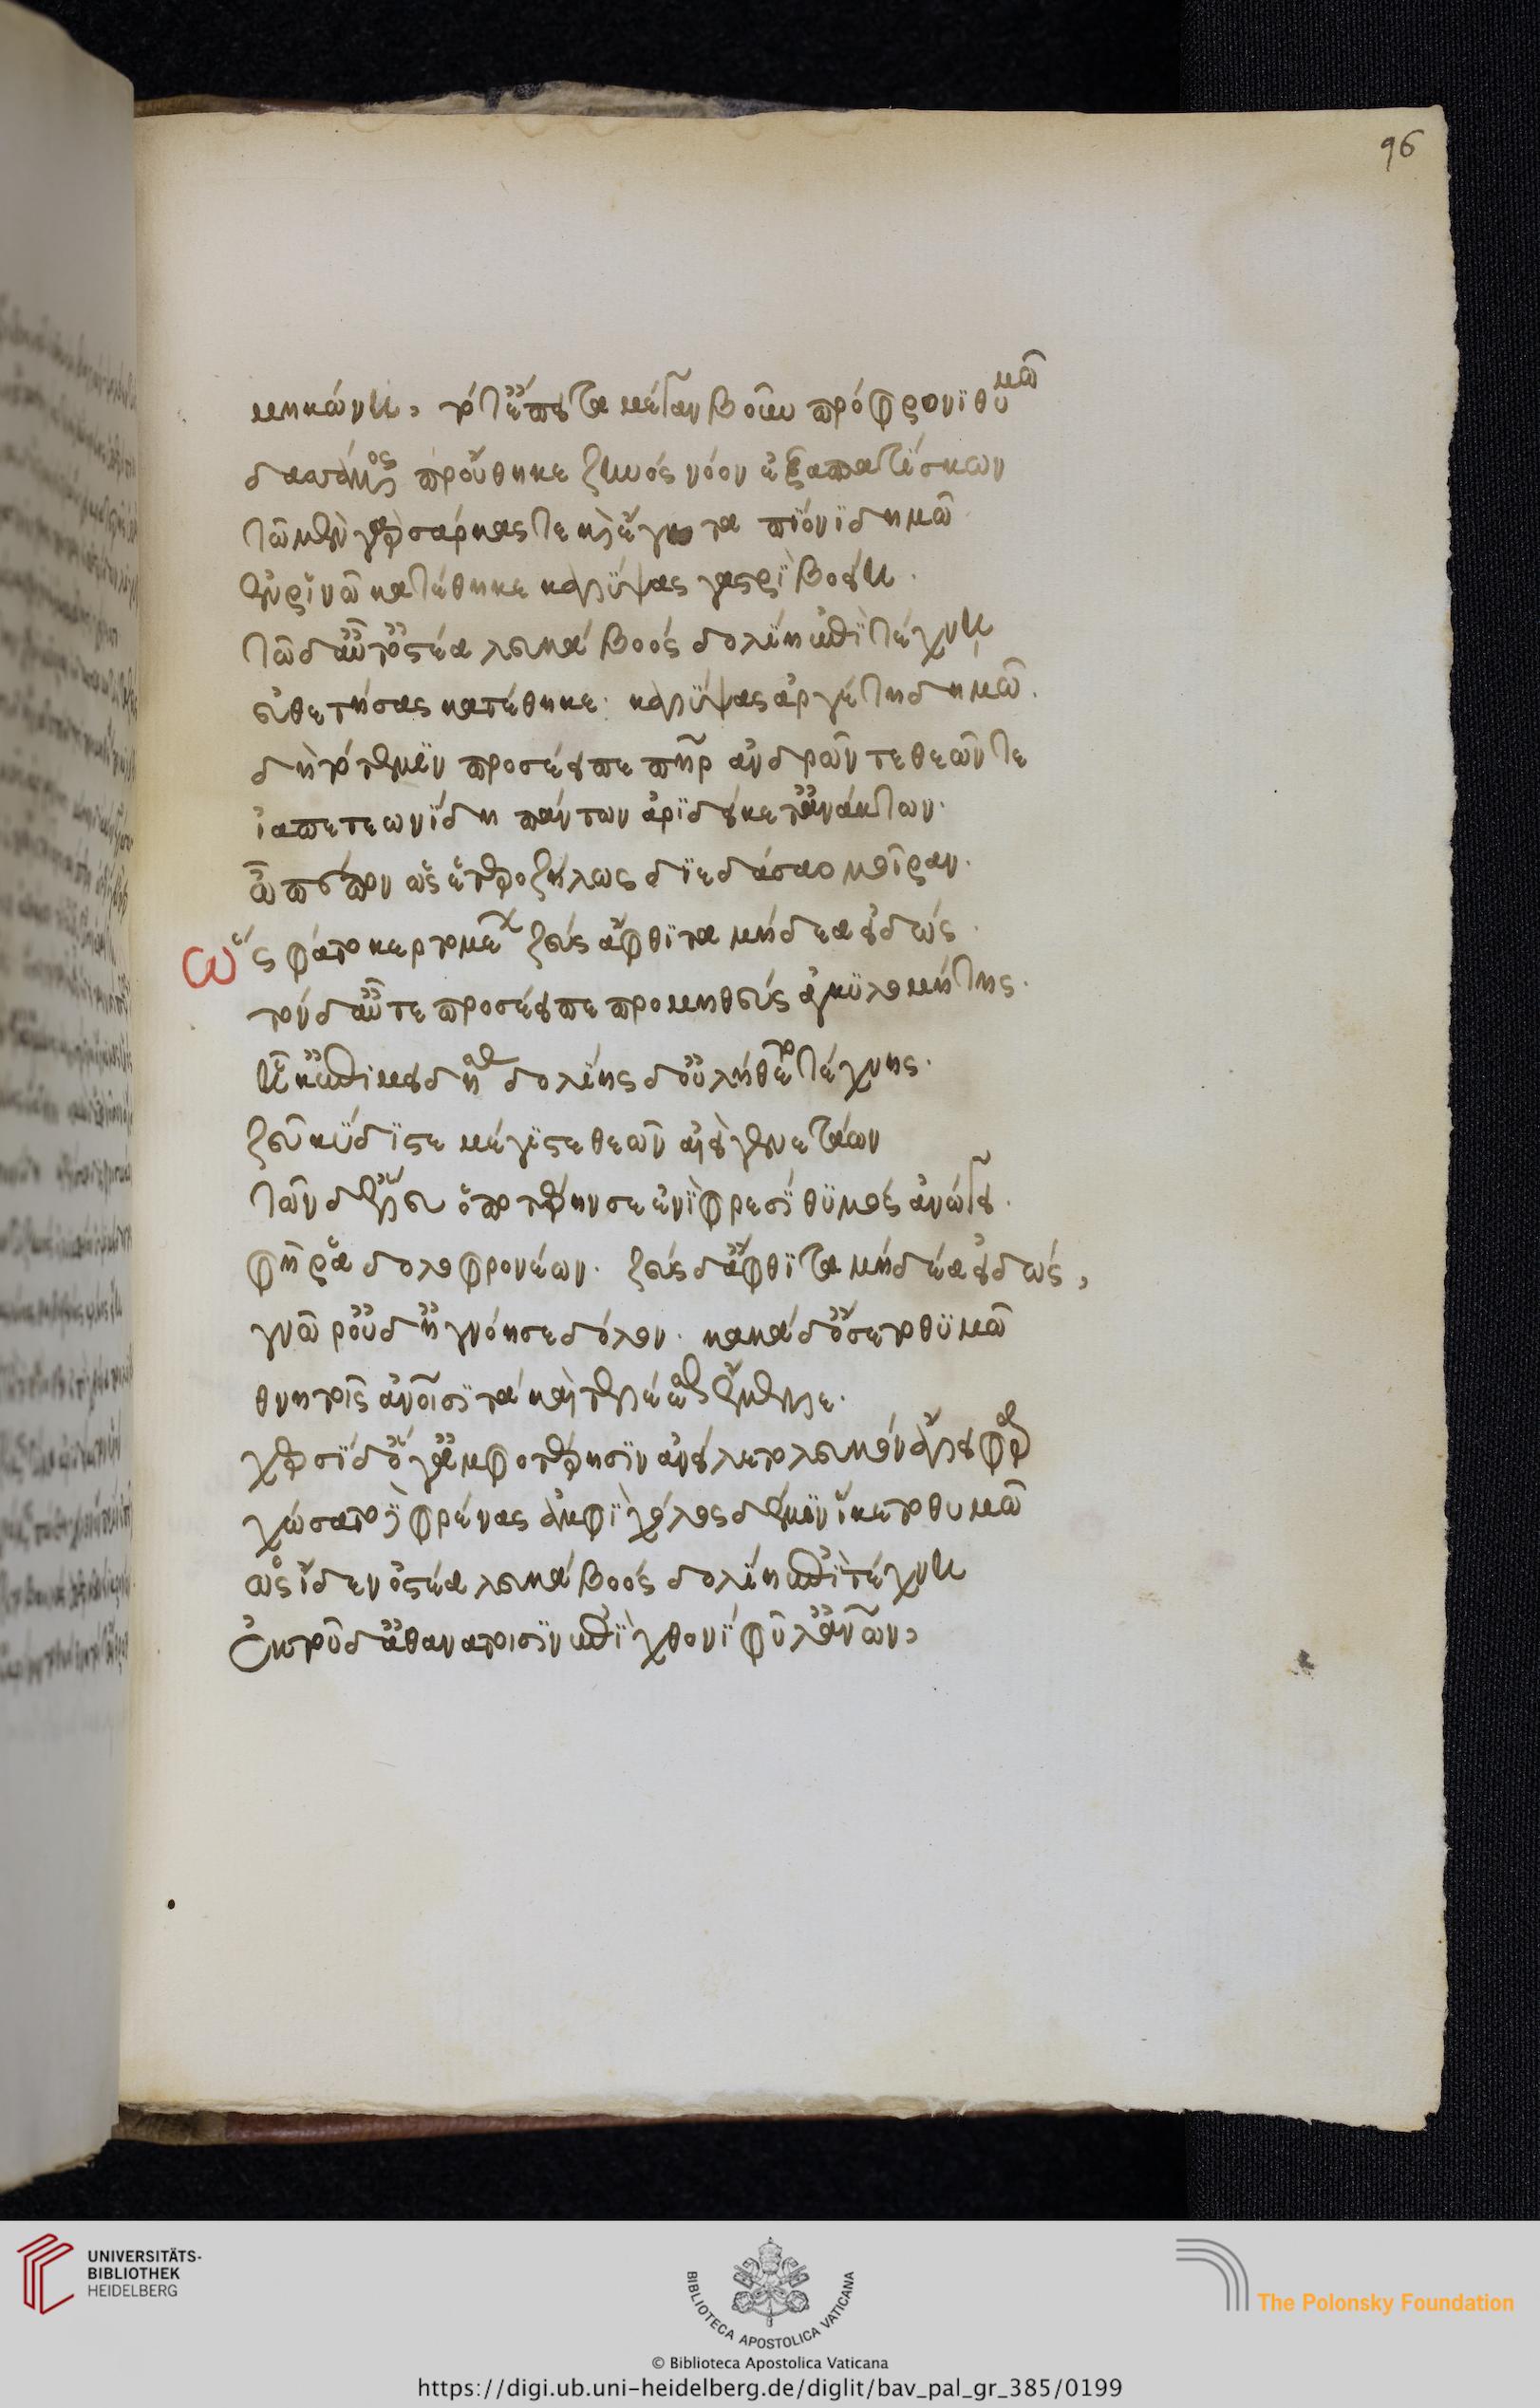 96
μηκώνῃ, τότ' ἔπειτα μέγαν βοῦν πρόφρονι θυμῶ
δασάμενος προὔθηκε ζηνὸς νόον ἐξαπατίσκων
τῶ μὲν γὰρ σάρκας τε καὶ ἔγκατα πίονι δημῶ
ἐν ῥινῶ κατέθηκε καλύψας γαστρὶ βοείῃ.
τῶ δ' αὖτ' ὀστέα λευκὰ βοὸς δολίη ἐπὶ τέχνῃ
εὐθετήσας κατέθηκε· καλύψας ἀργέτη δημῶ.
δὴ τότε μὲν προσέειπε πατὴρ ἀνδρῶν τε θεῶν τε
ἰαπετεωνίδη πάντων ἀριδείκετ' ἀνάκτων·
ὦ πέπον ὡς ἑτεροζήλως διεδάσαο μοίρας.
ὣς φάτο κερτομέων ζεὺς ἄφθιτα μήδεα εἰδώς.
τὸν δ' αὖτε προσέειπε προμηθεὺς ἀγκυλομήτης.
ἦκ' ἐπιμειδήσας δολίης δ' οὐ λήθετο τέχνης.
ζεῦ κύδιστε μέγιστε θεῶν αἰειγενετάων
τῶν δ' ἕλευ ὁπποτέρην σε ἐνὶ φρεσὶ θυμὸς ἀνώγει.
φῆ ῥα δολοφρονέων. ζεὺς δ' ἄφθιτα μήδεα εἰδώς,
γνῶ ῥ' οὐδ' ἠγνόησε δόλον. κακὰ δ' ὄσσετο θυμῶ
θνητοῖς ἀνοισι τὰ καὶ τελέεσθαι ἔμελλε.
χερσὶ δ' ὅγ' ἀμφοτέρησιν ἀνείλετο λευκὸν ἄλειφαρ
χώσατο δὲ φρένας ἀμφὶ χόλος δέ μιν ἵκετο θυμῶ
ὡς ἴδεν ὀστέα λευκὰ βοὸς δολίη ἐπὶ τέχνῃ
ἐκ τοῦ δ' ἀθανάτοισιν ἐπὶ χθονὶ φῦλ' ἀνων,
UNIVERSITÄTS-
BIBLIOTHEK
HEIDELBERG
BIBLIOTECA APOSTOLICA VATICANA
The Polonsky Foundation
© Biblioteca Apostolica Vaticana
https://digi.ub.uni-heidelberg.de/diglit/bav_pal_gr_385/0199